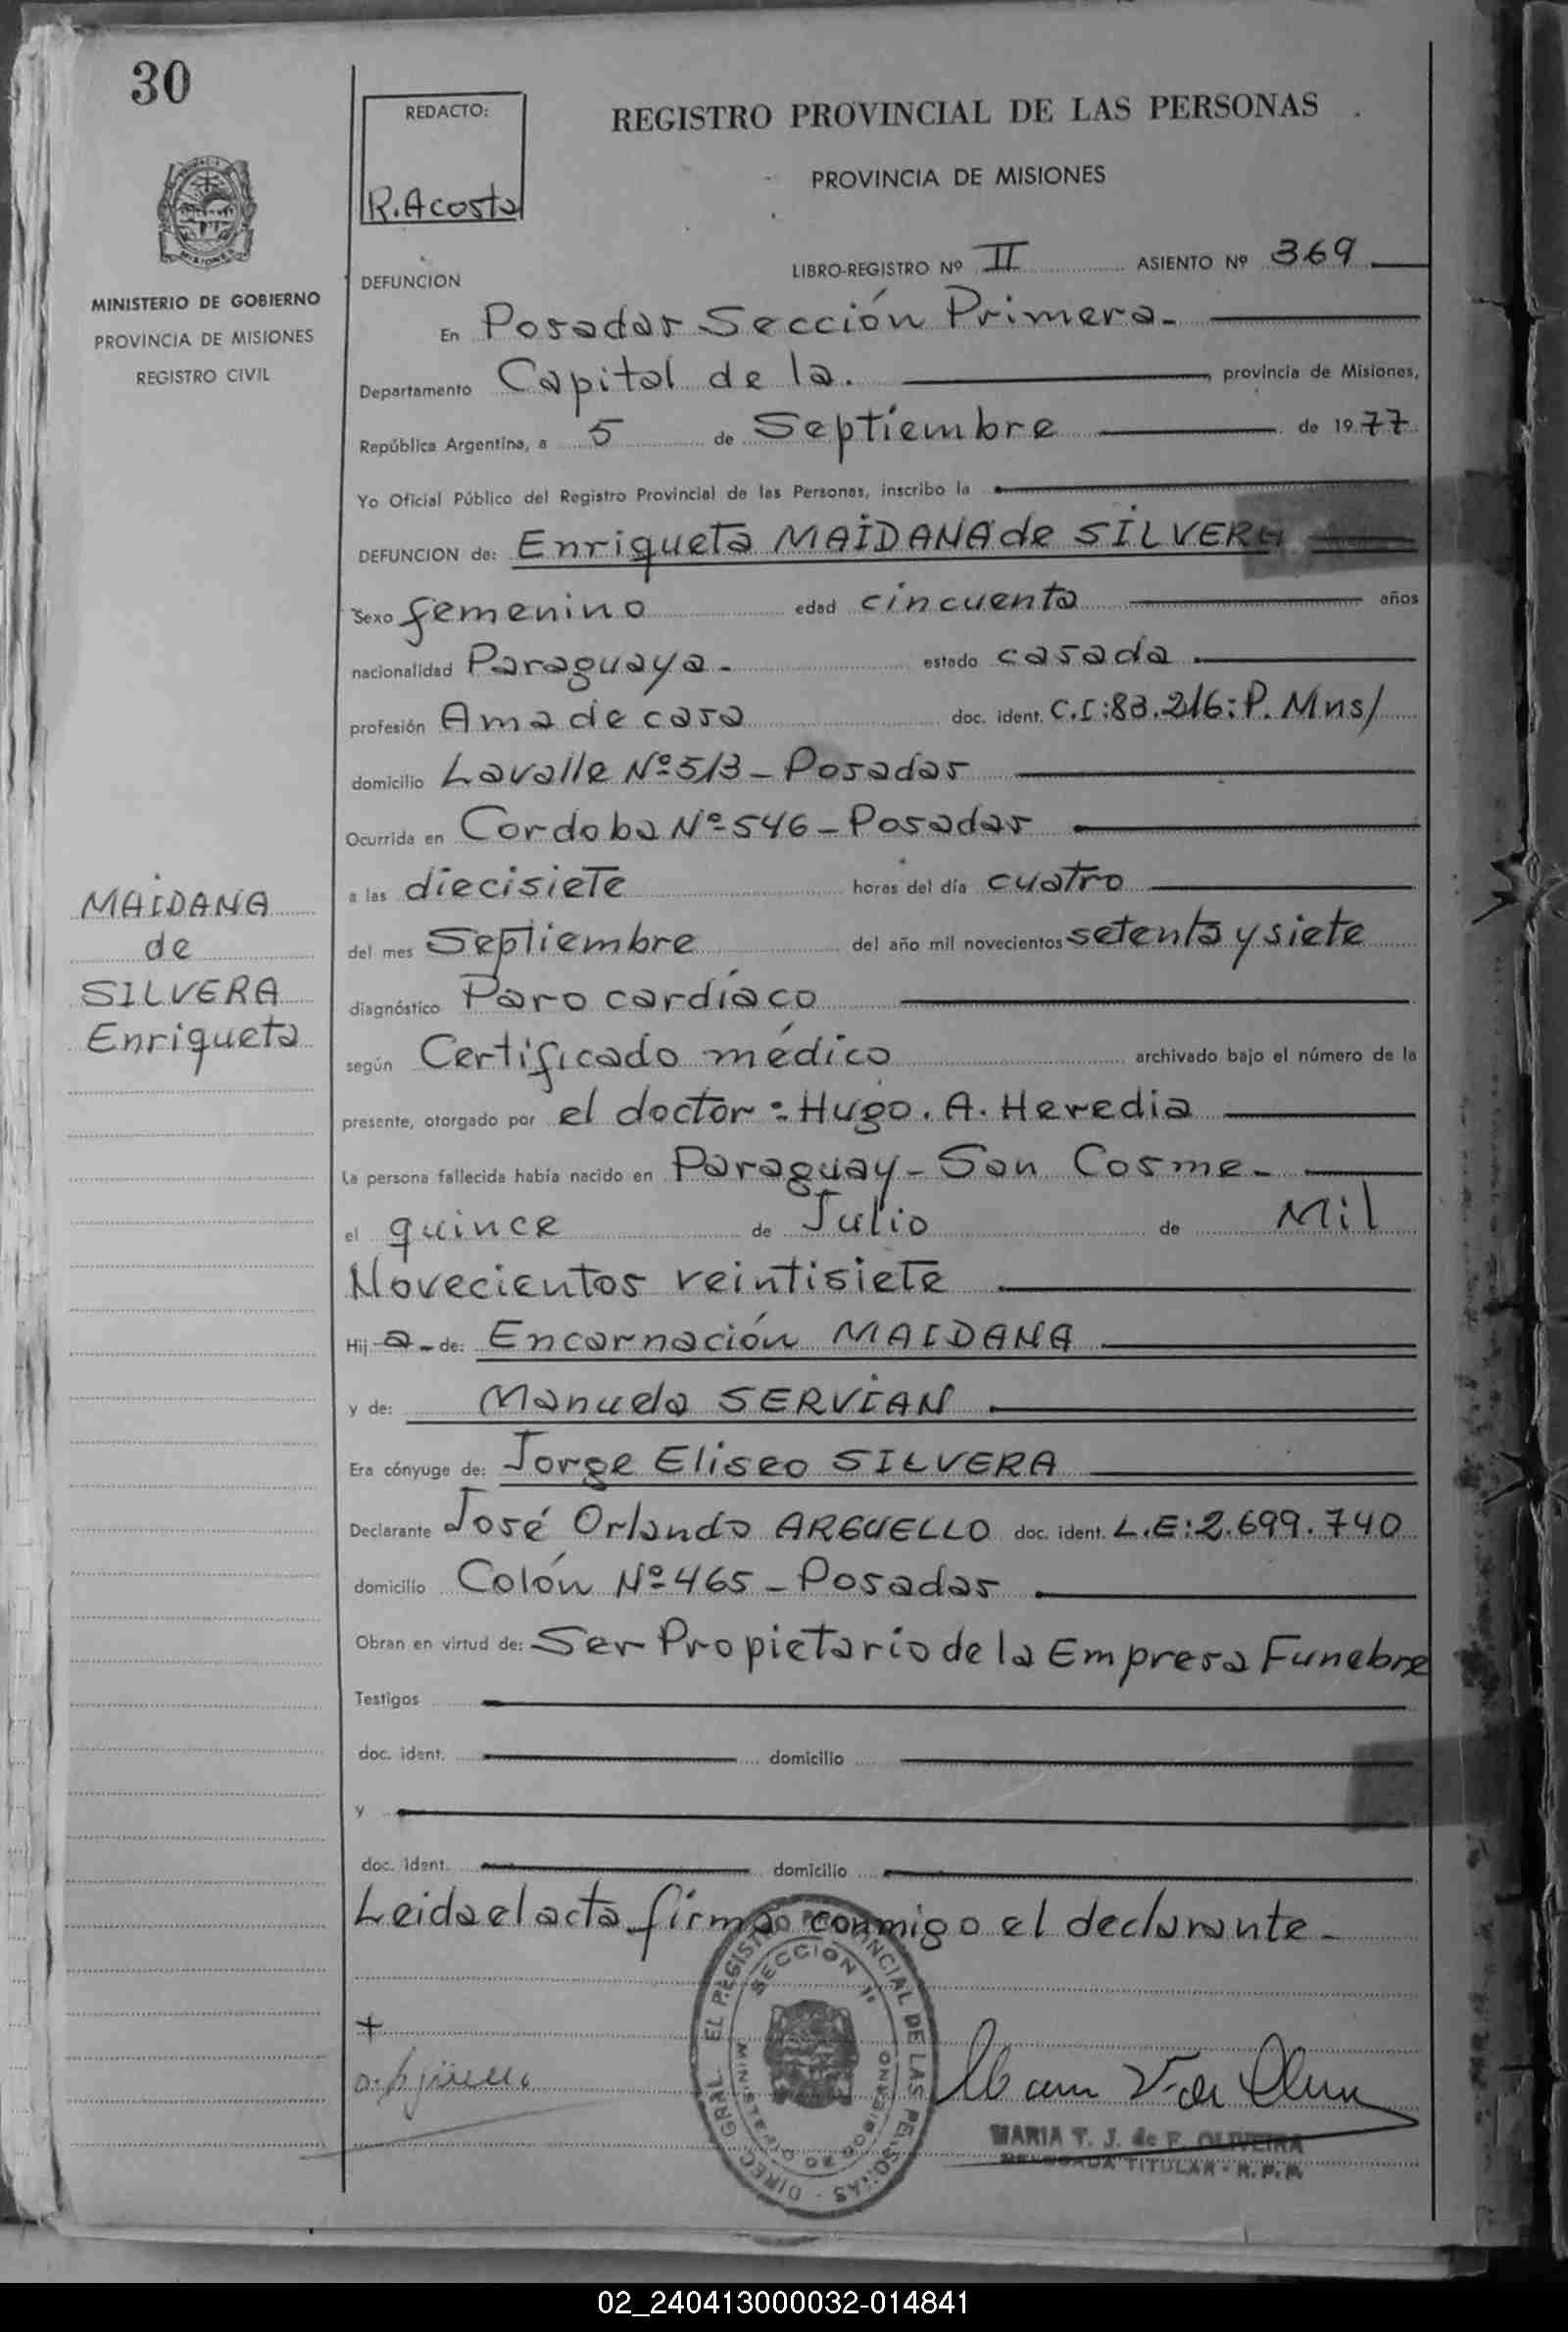 30
REDACTO:
R. Acosta
REGISTRO PROVINCIAL DE LAS PERSONAS
PROVINCIA DE MISIONES
MISIONES
MINISTERIO DE GOBIERNO
PROVINCIA DE MISIONES
REGISTRO CIVIL
DEFUNCION
LIBRO-REGISTRO Nº II ASIENTO Nº 369
En Posadas Sección Primera.
Departamento Capital de la. provincia de Misiones,
República Argentina, a 5 de Septiembre de 1977
Yo Oficial Público del Registro Provincial de las Personas, inscribo la
DEFUNCION de: Enriqueta MAIDANA de SILVERA
Sexo femenino edad cincuenta años
nacionalidad Paraguaya. estado casada
profesión Ama de casa doc. ident. C.I:83.216:P. Mns/
domicilio Lavalle Nº 513 - Posadas
Ocurrida en Cordoba Nº 546 - Posadas
a las diecisiete horas del día cuatro
del mes Septiembre del año mil novecientos setenta y siete
diagnóstico Paro cardíaco
según Certificado médico archivado bajo el número de la
presente, otorgado por el doctor: Hugo. A. Heredia
La persona fallecida había nacido en Paraguay - San Cosme -
el quince de Julio de Mil
Novecientos veintisiete
Hij a - de: Encarnación MAIDANA
y de: Manuela SERVIAN
Era cónyuge de: Jorge Eliseo SILVERA
Declarante José Orlando ARGUELLO doc. ident. L.E:2.699.740
domicilio Colón Nº 465 - Posadas
Obran en virtud de: Ser Propietario de la Empresa Funebre
Testigos
doc. ident. domicilio
y
doc. ident. domicilio
Leida el acta firma conmigo el declarante -
MAIDANA
de
SILVERA
Enriqueta
DIREC. GRAL. EL REGISTRO PROVINCIAL DE LAS PERSONAS
SECCION 1ª
MINISTERIO DE GOBIERNO
MARIA T. J. de F. OLIVEIRA
DELEGADA TITULAR - R. P. P.
02_240413000032-014841